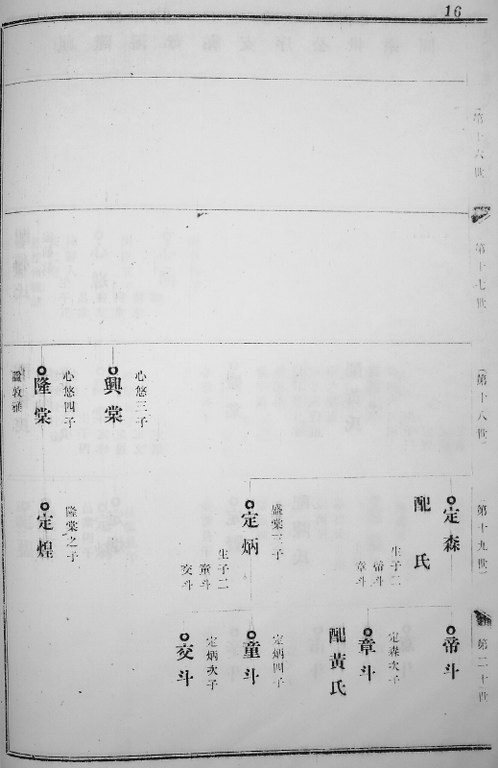 16
第十六世
第十七世
第十八世
興棠
心悠三子
隆棠
心悠四子
第十九世
定森
配　氏
生子二
帝斗
章斗
定炳
盛棠三子
生子二
童斗
交斗
定煌
隆棠之子
第二十世
帝斗
章斗
定森次子
配黃氏
童斗
定炳四子
交斗
定炳次子